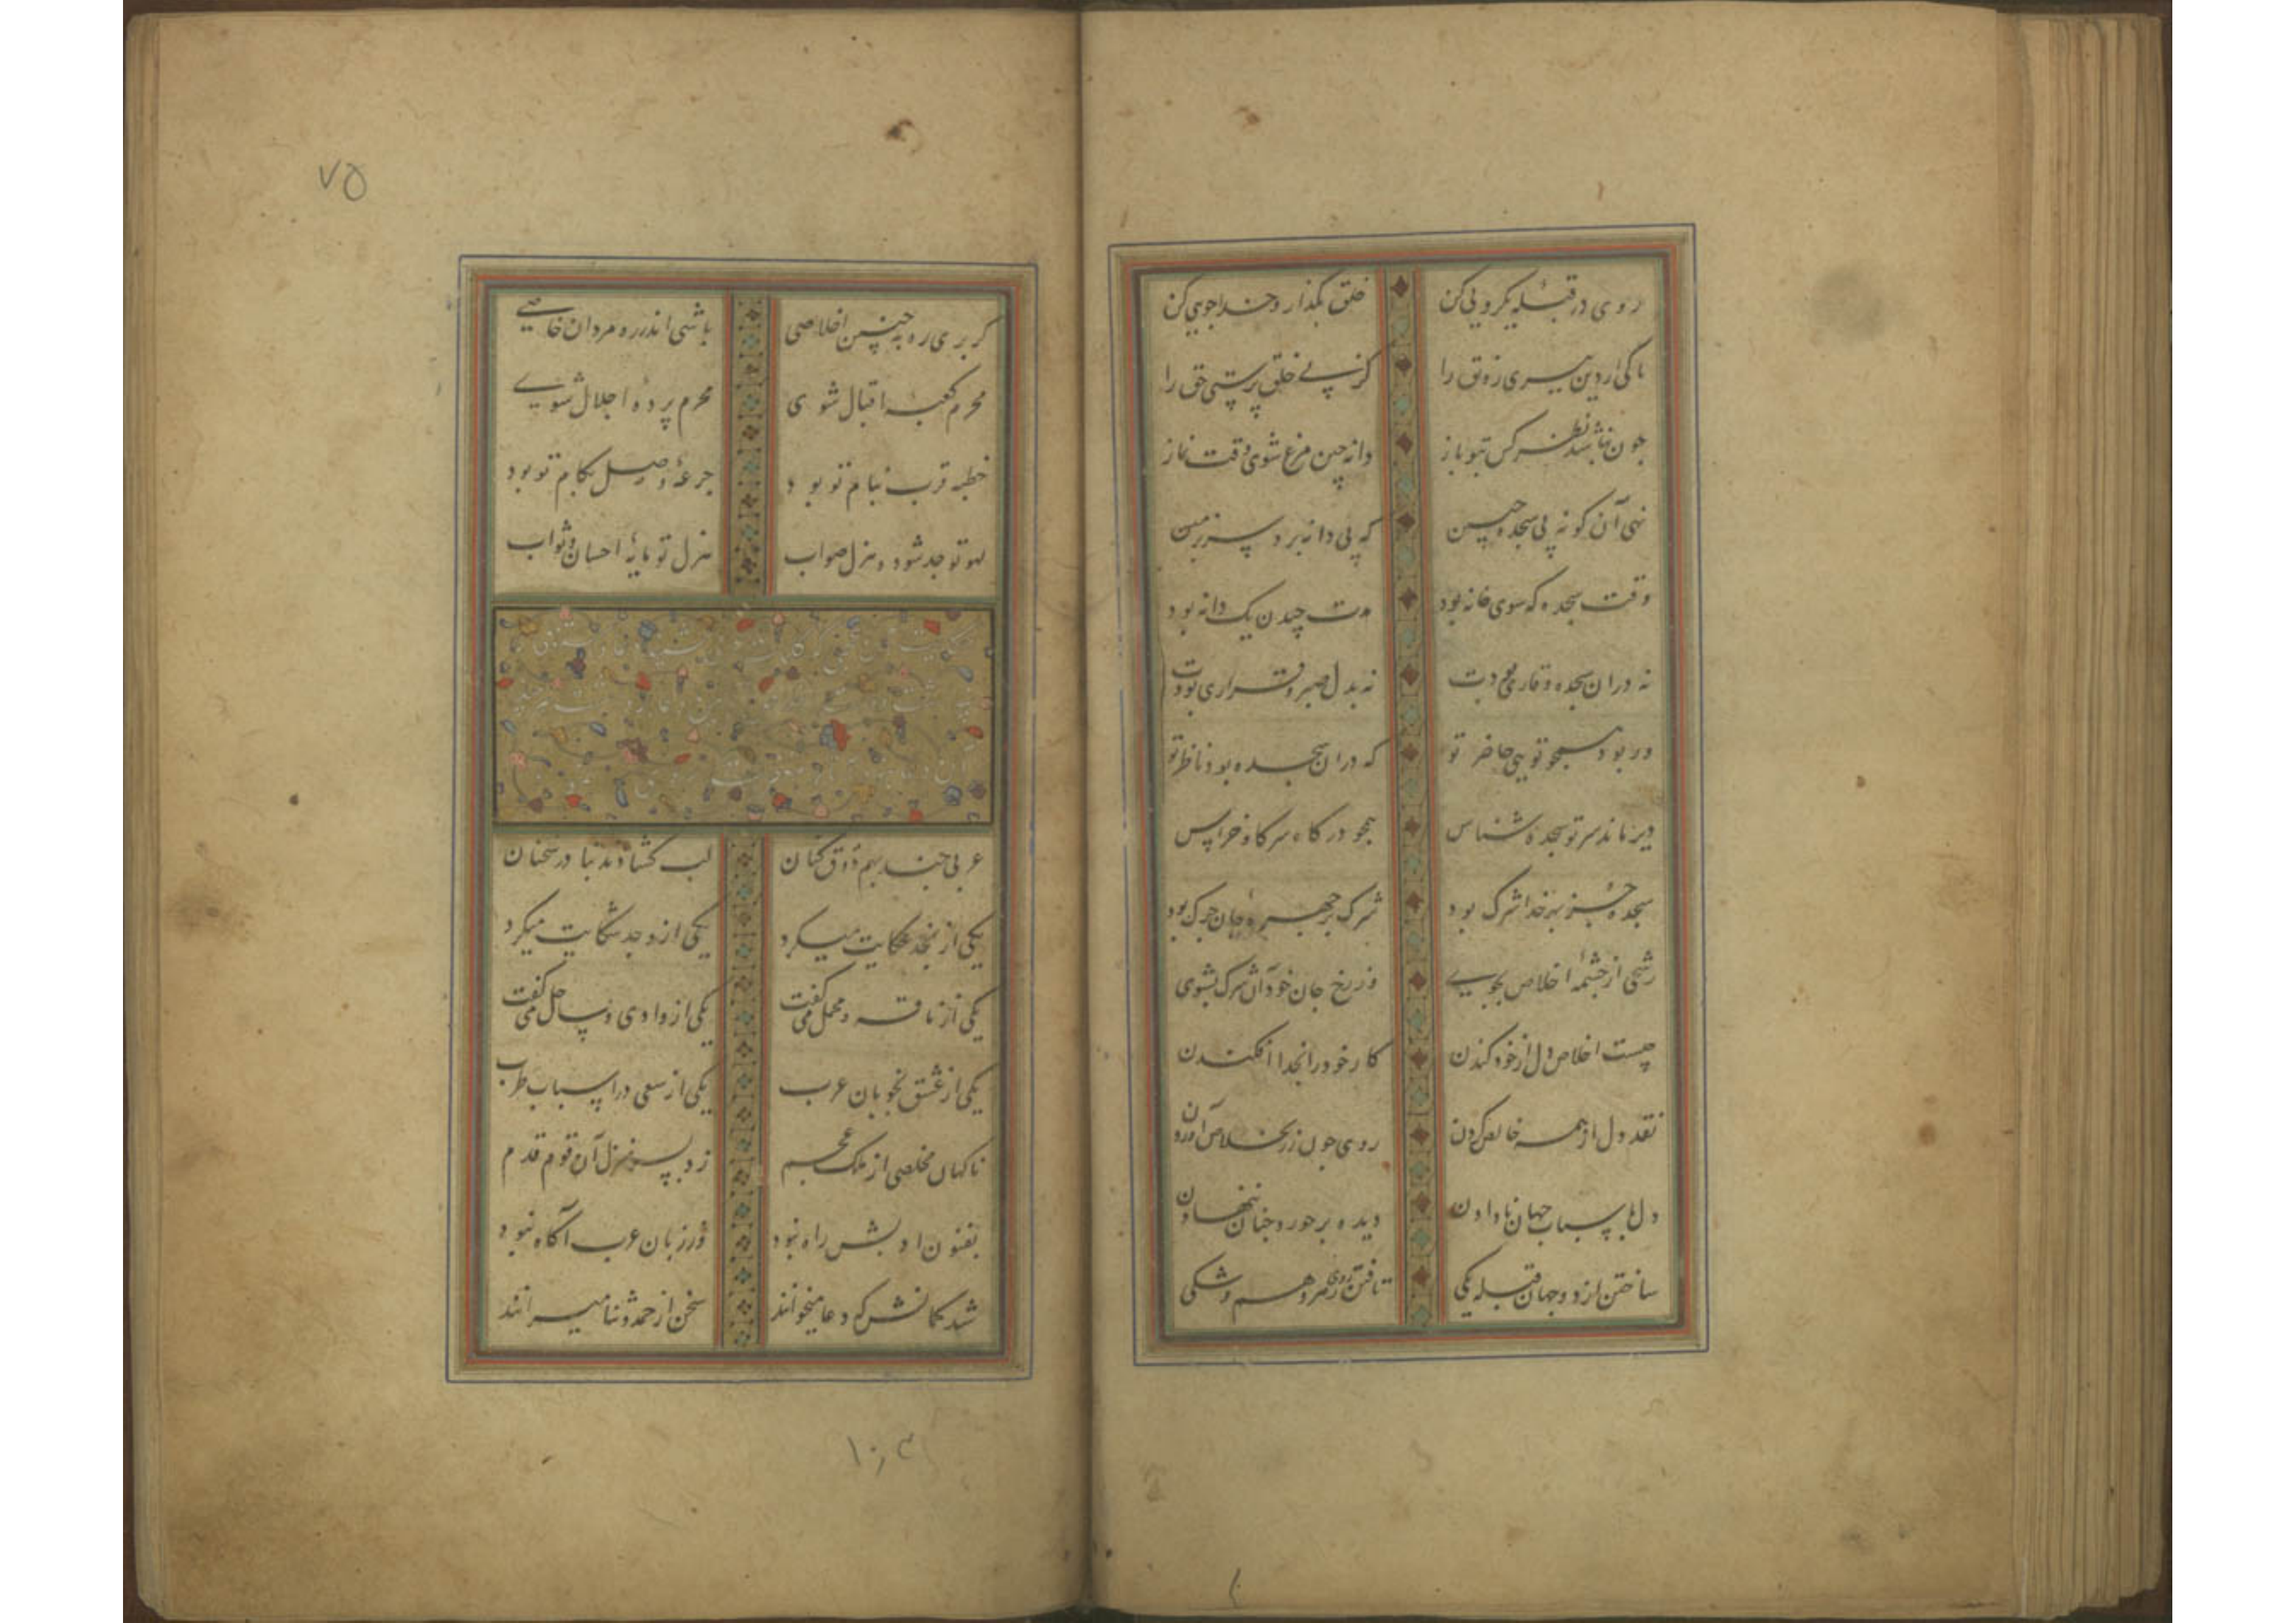 روی در قبله یکرویی کن خلق بگذار و خدا جویی کن
تا کی ار دین سپری زه تق را کز پی خلق پرستی حق را
چون نباشد نظر کس بتو باز دانه چین مرغ شوی وقت نماز
نهی آن کونه پی سجده جبین که پی دانه برد سر بزمین
وقت سجده که سوی خانه بود مدت چیدن یک دانه بود
نه دران سجده وقاری بودت نه بدل صبر و قراری بودت
ور بود همچو تویی حاضر تو که دران سجده بود ناظر تو
دیر ماند سر تو سجده شناس همچو در کاه سر کاو خراس
سجده جز بهر خدا شرک بود شرک بر چهره جان چرک بود
رشحی از چشمه اخلاص بجوی وز رخ جان خود آن شرک بشوی
چیست اخلاص دل از خود کندن کار خود را بخدا افکندن
نقد دل از همه خالص کردن روی چون زر بخلاص آوردن
دل باسباب جهان نادادن دیده بر حور و جنان ننهادن
ساختن از دو جهان قبله یکی تافتن روی ز هر وهم و شکی
۷۵
کر بری ره به چنین اخلاصی باشی اندر ره مردان خاصی
محرم کعبه اقبال شوی محرم پرده اجلال شوی
خطبه قرب بنام تو بود جرعه وصل بکام تو بود
لهو تو جد شود و هزل صواب هزل تو مایه احسان و ثواب
عربی چند بهم ذوق کنان لب کشادند بنادر سخنان
یکی از نجد حکایت میکرد یکی از وجد شکایت میکرد
یکی از ناقه و محمل می گفت یکی از وادی و ساحل می گفت
یکی از عشق نخوبان عرب یکی از سعی در اسباب طرب
ناکهان مخلصی از ملک عجم زد بسر منزل آن قوم قدم
بفنون ادبش راه نبود ور زبان عرب آگاه نبود
شد کمانش که دعا میخوانند سخن از حمد و ثنا میرانند